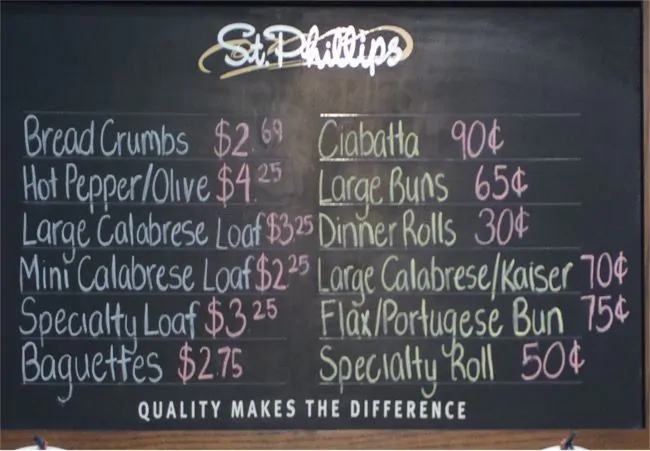 St. Phillips
Bread Crumbs $2.69
Hot Pepper/Olive $4.25
Large Calabrese Loaf $3.25
Mini Calabrese Loaf $2.25
Specialty Loaf $3.25
Baguettes $2.75
Ciabatta 90¢
Large Buns 65¢
Dinner Rolls 30¢
Large Calabrese/Kaiser 70¢
Flax/Portugese Bun 75¢
Specialty Roll 50¢
QUALITY MAKES THE DIFFERENCE